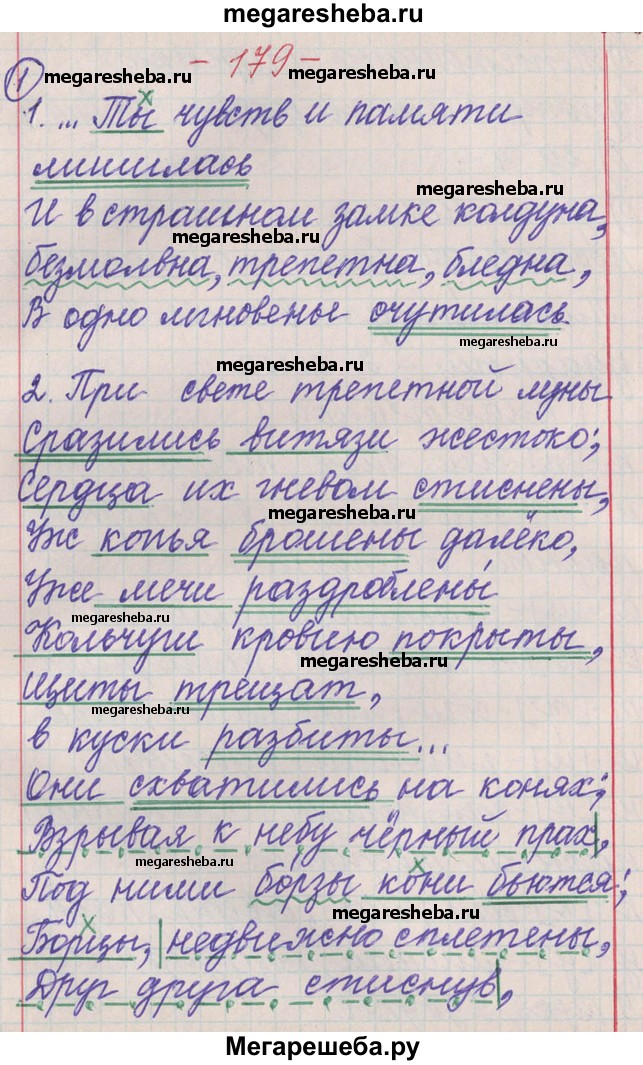 megaresheba.ru
- 179 -
① megaresheba.ru megaresheba.ru
1. ... Ты чувств и памяти
лишилась
megaresheba.ru
И в страшном замке колдуна,
megaresheba.ru
безмолвна, трепетна, бледна,
В одно мгновенье очутилась
megaresheba.ru
megaresheba.ru
2. При свете трепетной луны
Сразились витязи жестоко;
Сердца их гневом стиснены,
megaresheba.ru
Уж копья брошены далёко,
Уже мечи раздроблены
megaresheba.ru
Кольчуги кровию покрыты,
megaresheba.ru
Щиты трещат,
megaresheba.ru
в куски разбиты...
Они схватились на конях;
Взрывая к небу чёрный прах,
megaresheba.ru
Под ними борзы кони бьются;
megaresheba.ru
Борцы, недвижно сплетены,
Друг друга стиснув,
Мегарешеба.ру